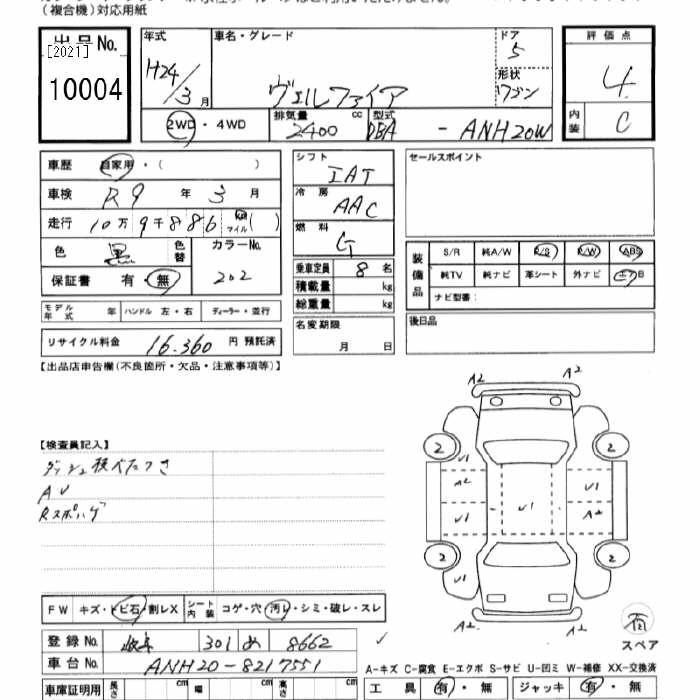 (複合機)対応用紙
出品No.
[2021]
10004
年式
H24/3月
車名・グレード
ヴェルファイア
ドア
5
形状
ワゴン
評価点
4
内装
C
2WD・4WD
排気量
2400 cc
型式
DBA - ANH20W
車歴 自家用・( )
車検 R9年 3月
走行 10万9千886 マイル( )
色 黒 色替
カラーNo.
202
保証書 有 無
モデル年式 年 ハンドル 左・右 ディーラー・並行
リサイクル料金 16.360 円 預託済
シフト
IAT
冷房
AAC
燃料
G
乗車定員 8 名
積載量 kg
総重量 kg
名変期限
月 日
セールスポイント
装備品
S/R 純A/W P/S P/W ABS
純TV 純ナビ 革シート 外ナビ エアB
ナビ型番:
後日品
【出品店申告欄(不良箇所・欠品・注意事項等)】
【検査員記入】
ダッシュ接べたつき
AU
Rスポハゲ
A2 A2
2 2
U1 U1
A2
U1
U1 A2
2 2
U1
A2 A2
スペア
FW キズ・トビ石・割レX シート内装 コゲ・穴・汚レ・シミ・破レ・スレ
登録No. 岐阜 301 め 8662
車台No. ANH20-8217551
車庫証明用 長さ cm 幅 cm 高さ cm
A-キズ C-腐食 E-エクボ S-サビ U-凹ミ W-補修 XX-交換済
工具 有・無 ジャッキ 有・無